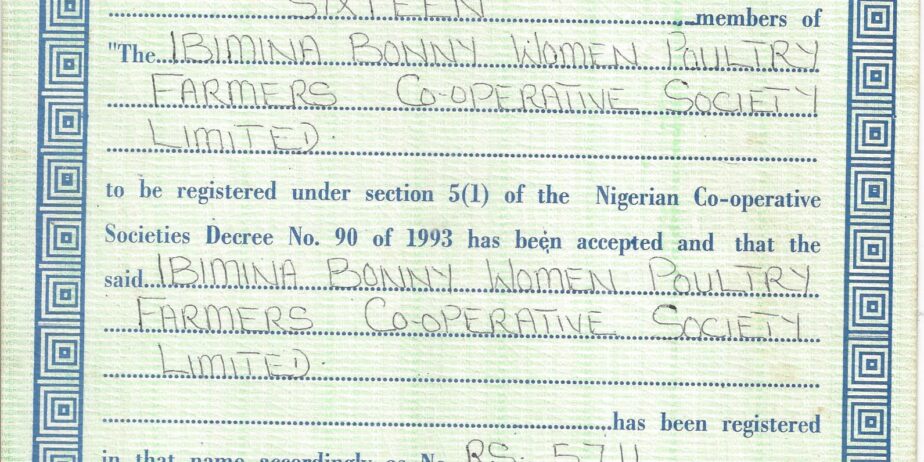 SIXTEEN members of
"The IBIMINA BONNY WOMEN POULTRY
FARMERS CO-OPERATIVE SOCIETY
LIMITED.
to be registered under section 5(1) of the Nigerian Co-operative
Societies Decree No. 90 of 1993 has been accepted and that the
said IBIMINA BONNY WOMEN POULTRY
FARMERS CO-OPERATIVE SOCIETY
LIMITED.
has been registered
in that name accordingly as No. RS. 5711